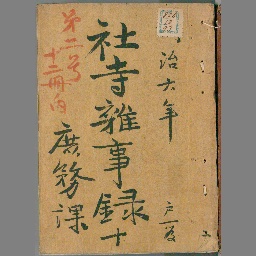 治六年
社寺雜事録
十
庶務課
第二号
十二冊内